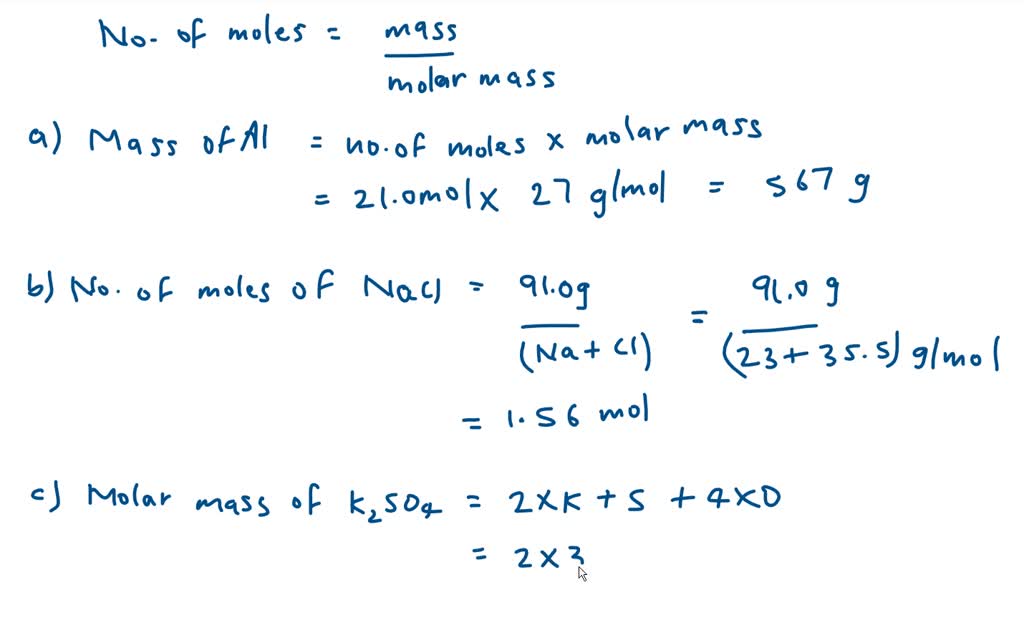 No. of moles = mass
molar mass
a) Mass of Al = no. of moles x molar mass
= 21.0mol x 27 g/mol = 567 g
b) No. of moles of NaCl = 91.0g = 91.0 g
(Na + Cl) (23 + 35.5) g/mol
= 1.56 mol
c) Molar mass of K₂SO₄ = 2 x K + S + 4 x O
= 2 x 3